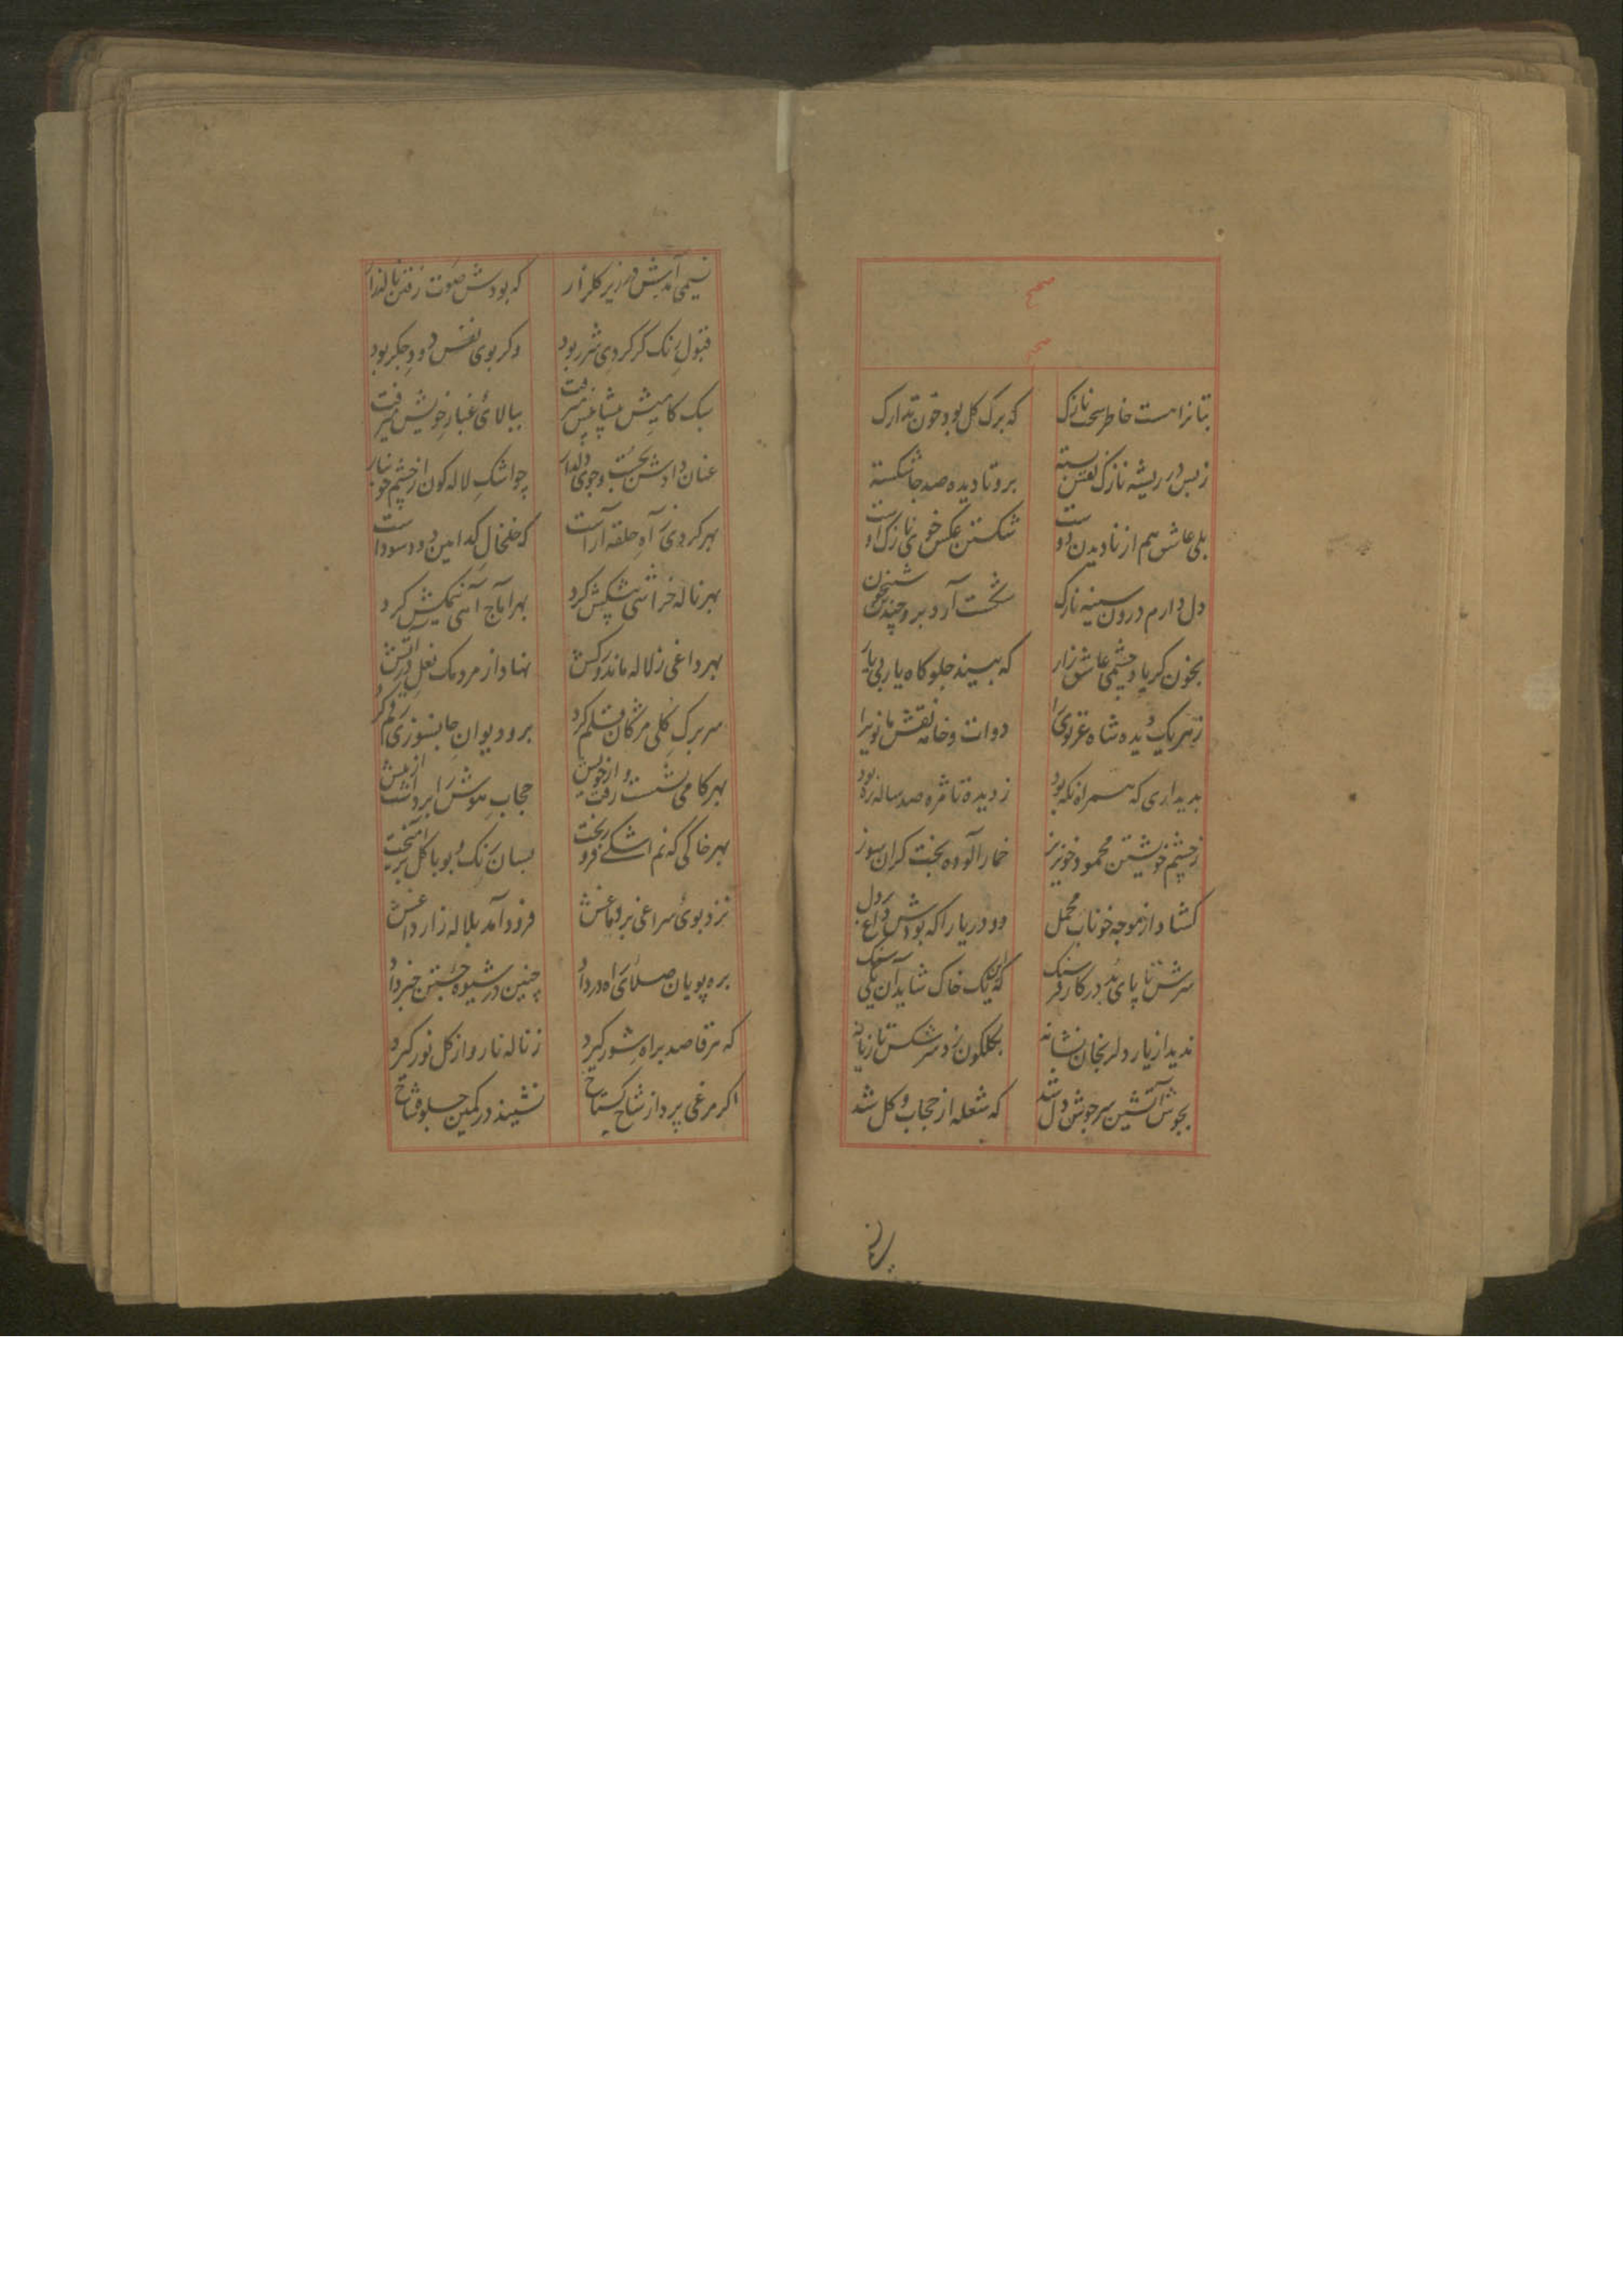 صحیح
صحیح
بتانراست خاطر سخت نازک که برک کل بود خون تدارک
زبس در ریشه نازک نفس بسته برو تا دیده صد جا شکسته
بلی عاشق هم از نادیدن دوست شکستن عکس خوی نازک اوست
دل دارم درون سینه نازک شکست آرد برو چندین شبیخون
بخون کریاد چشمی عاشق زار که بیند جلوه کاه یار بی یار
زهر یک دیده شاه غزنوی را دوات و خامه نقش مانوی را
بدیداری که همراه نکه بود ز دیده تا مژه صد ساله ره بود
ز چشم خویشتن محمود خونریز خمار آلوده بخت کران سوز
کشاد از موجه خوناب محمل دو دریا را که بودش داغ بر دل
سرش تا پای در کار فرسنک که یک خاک شاید آن یکی سنک
ندید از یار دلرنجان نشانه بکلکون زد سرشکش تازیانه
بجوش آتشین سرجوش دل شد که شعله از حجاب و کل شد
نسیمی آمدش در زیر کلزار که بودش صوت رفتن ناله زار
قبول رنک کر کردی شرر بود وکر بوی نفس دود جکر بود
سبک کامیش پیشاپیش میرفت ببالای غبار خویش میرفت
عنان دادش بجست و جوی دلدار چو اشک لاله کون از چشم خونبار
بهر کردی ز آه حلقه آراست که خلخال کدامین دود سوداست
بهر ناله خراشی پیشکش کرد بهر آماج آهی نیمکش کرد
بهر داغی ز لاله ماند درکش نهاد از مردمک نعل در آتش
سر برک کلی مژکان قلم کرد برو دیوان جانسوزی رقم کرد
بهر کامی نشست و از خویش رفت حجاب هوش را برداشت از پیش
بهر خاکی که نم اشکی فرو ریخت بسان رنک و بو با کل برآمیخت
نزد بوی سراغی بر دماغش فرود آمد بلاله زار داغش
بره پویان صلای راه درداد چنین در شیوه جستن خبر داد
که هر قاصد براه شور کیرد ز ناله نار و از کل نور کیرد
اکر مرغی پرد از شاخ کستاخ نشیند در کمین جلوه شاخ